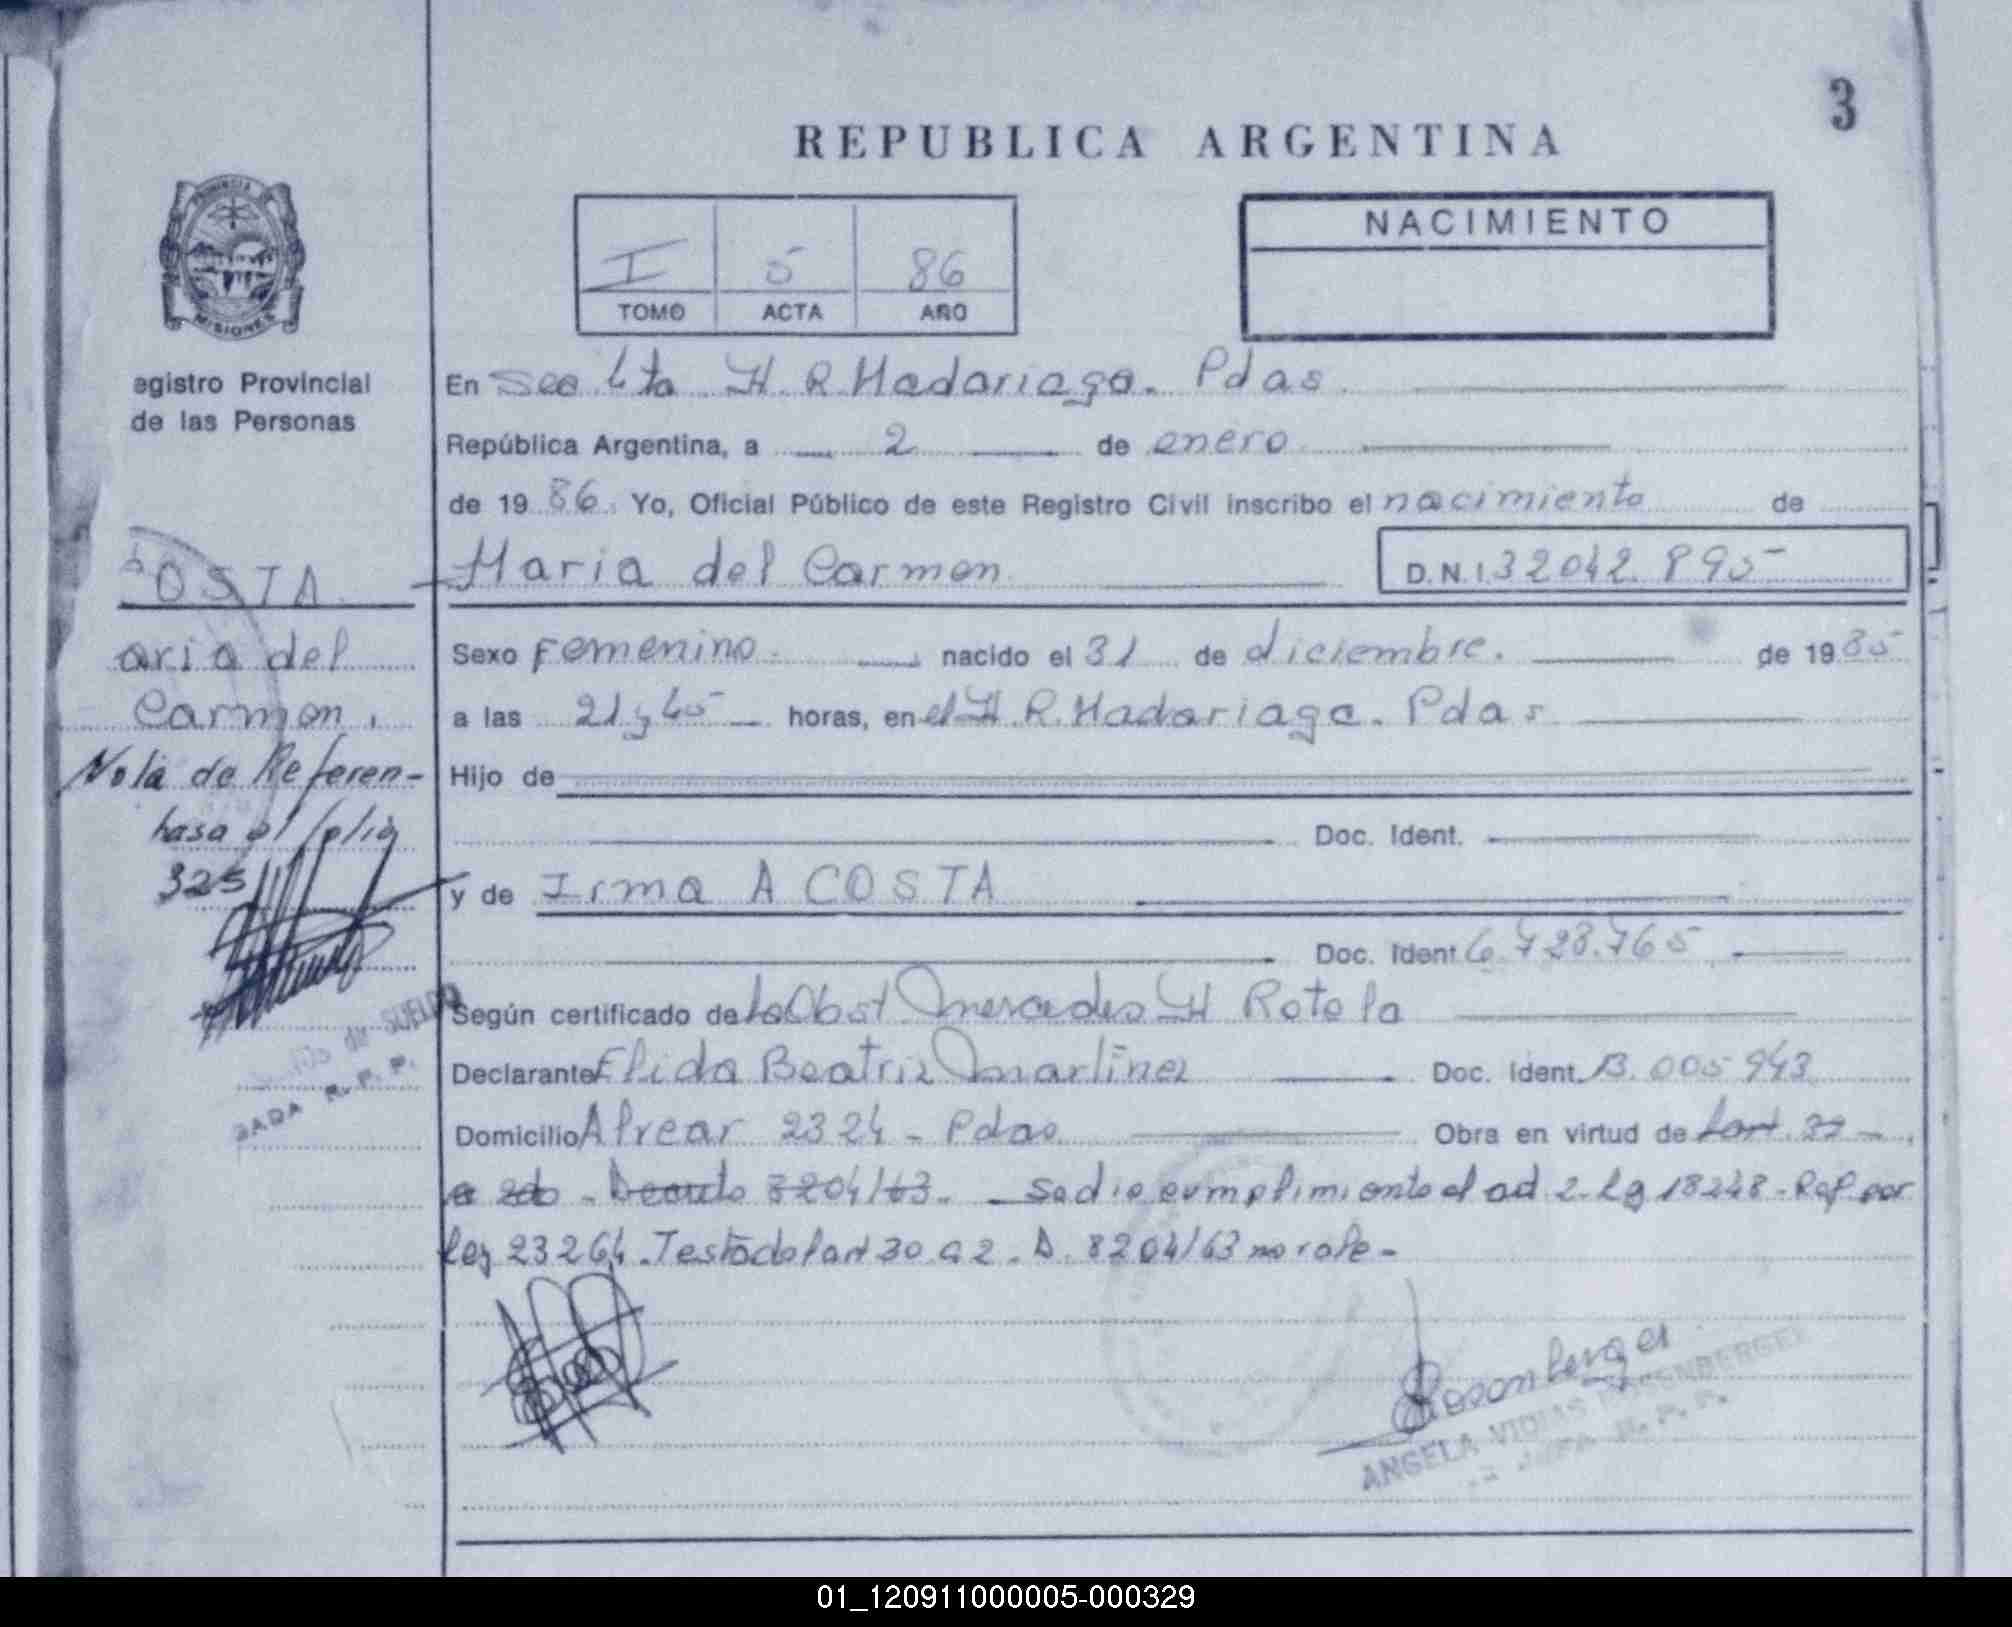 3
REPUBLICA ARGENTINA
PROVINCIA
MISIONES
I 5 86
TOMO ACTA AÑO
NACIMIENTO
egistro Provincial
de las Personas
En Sec 4ta H. R Madariaga. Pdas
República Argentina, a 2 de enero
de 19 86. Yo, Oficial Público de este Registro Civil inscribo el nacimiento de
Maria del Carmen D.N.I. 32042.895
COSTA
aria del
Carmen.
Sexo Femenino. nacido el 31 de diciembre. de 19 85
a las 21 y 45 horas, en el H. R. Madariaga. Pdas
Nota de Referen-
hasa al folio
325
Hijo de
Doc. Ident.
y de Irma ACOSTA
Doc. Ident. 6.728.765
Según certificado de la Obst Mercedes H Rotela
Declarante Elida Beatriz Martinez Doc. Ident. B. 005943
Domicilio Alvear 2324 - Pdas Obra en virtud de
8204/63. Se dio cumplimiento al art 2- Ley 18248 - Ref. por
ley 23264. Testado l art 30 a 2. D. 8204/63 no vale-
SUELDO
R. P. P.
Rosenberger
ANGELA ROSENBERGER
JEFA R. P. P.
01_120911000005-000329